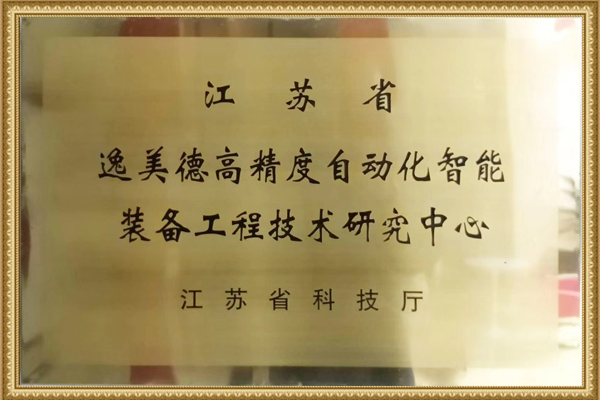 江苏省
逸美德高精度自动化智能
装备工程技术研究中心
江苏省科技厅